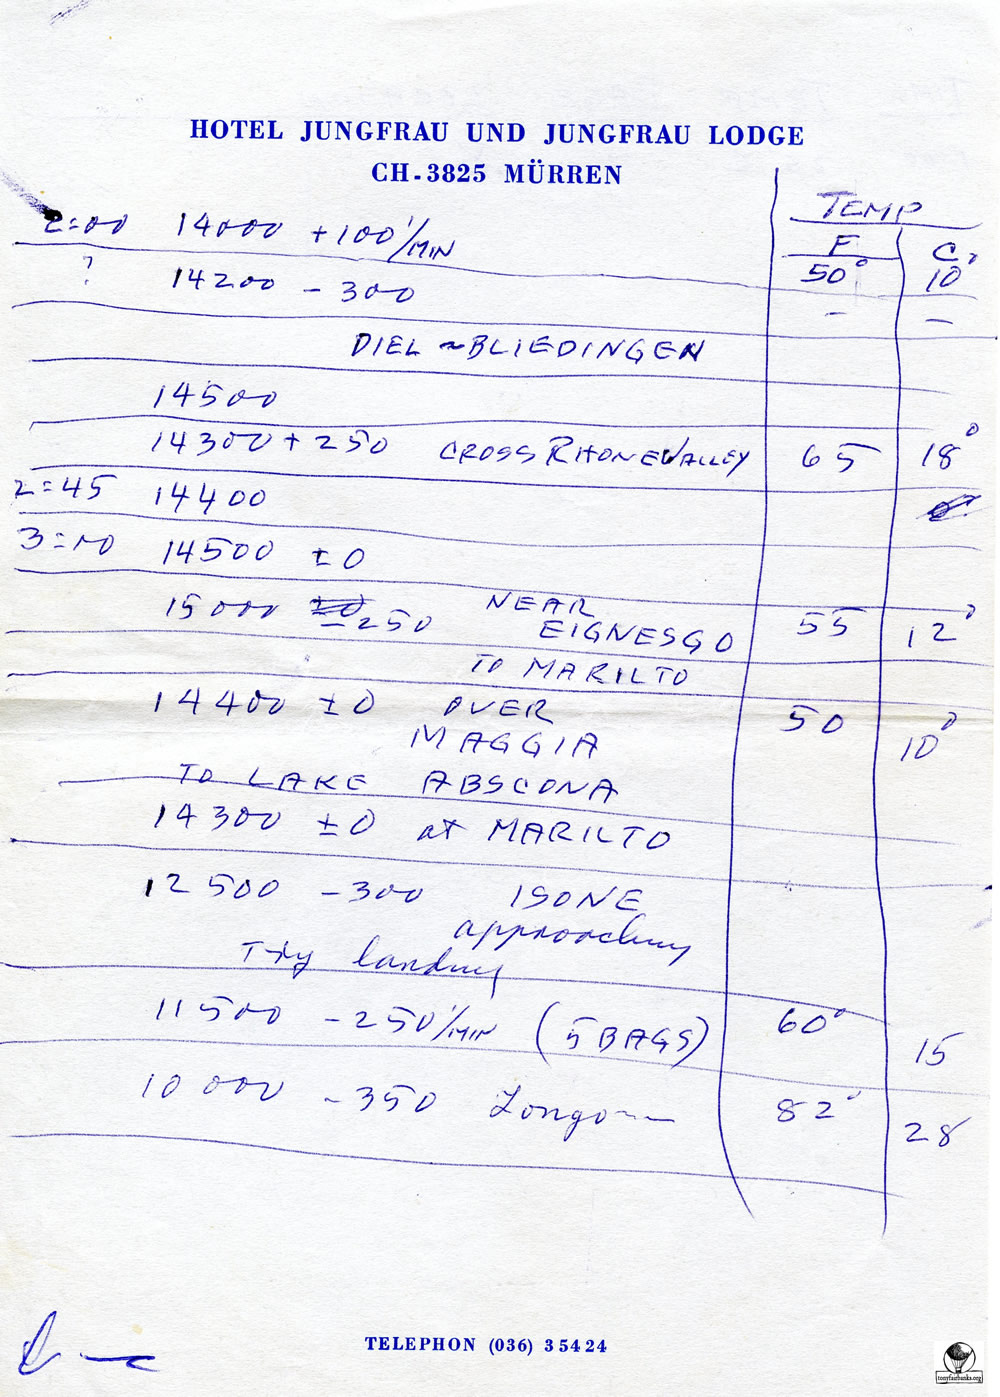 HOTEL JUNGFRAU UND JUNGFRAU LODGE
CH-3825 MÜRREN
TEMP
F C°
2:00 14000 +100'/MIN 50° 10
? 14200 - 300 - -
DIEL ~ BLIEDINGEN
14500
14300 + 250 CROSS RHONE VALLEY 65 18°
2:45 14400
3:00 14500 ±0
15000 ±0 -250 NEAR 55 12°
EIGNESGO
TO MARILTO
14400 ±0 OVER 50 10°
MAGGIA
TO LAKE ABSCONA
14300 ±0 at MARILTO
12500 - 300 ISONE
approaching
Try landing
11500 - 250'/MIN (5 BAGS) 60° 15
10000 - 350 82° 28
TELEPHON (036) 3 54 24
tonyfairbanks.org